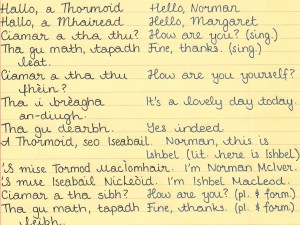 Hallo, a Thormoid Hello, Norman
Hallo, a Mhairead Hello, Margaret
Ciamar a tha thu? How are you? (sing.)
Tha gu math, tapadh Fine, thanks. (sing.)
leat.
Ciamar a tha thu How are you yourself?
fhèin?
Tha i brèagha It's a lovely day today.
an-diugh.
Tha gu dearbh. Yes indeed.
A Thormoid, seo Iseabail. Norman, this is
Ishbel (lit. here is Ishbel)
'S mise Tormod MacIomhair. I'm Norman McIver.
'S mise Iseabail NicLeòid. I'm Ishbel MacLeod.
Ciamar a tha sibh? How are you? (pl. & form.)
Tha gu math, tapadh Fine, thanks. (pl. & form.)
leibh.